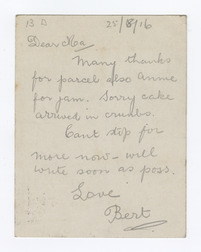 13 D 25/8/16
Dear Ma
Many thanks
for parcel also Annie
for jam. Sorry cake
arrived in crumbs.
Cant stop for
more now – will
write soon as poss.
Love
Bert